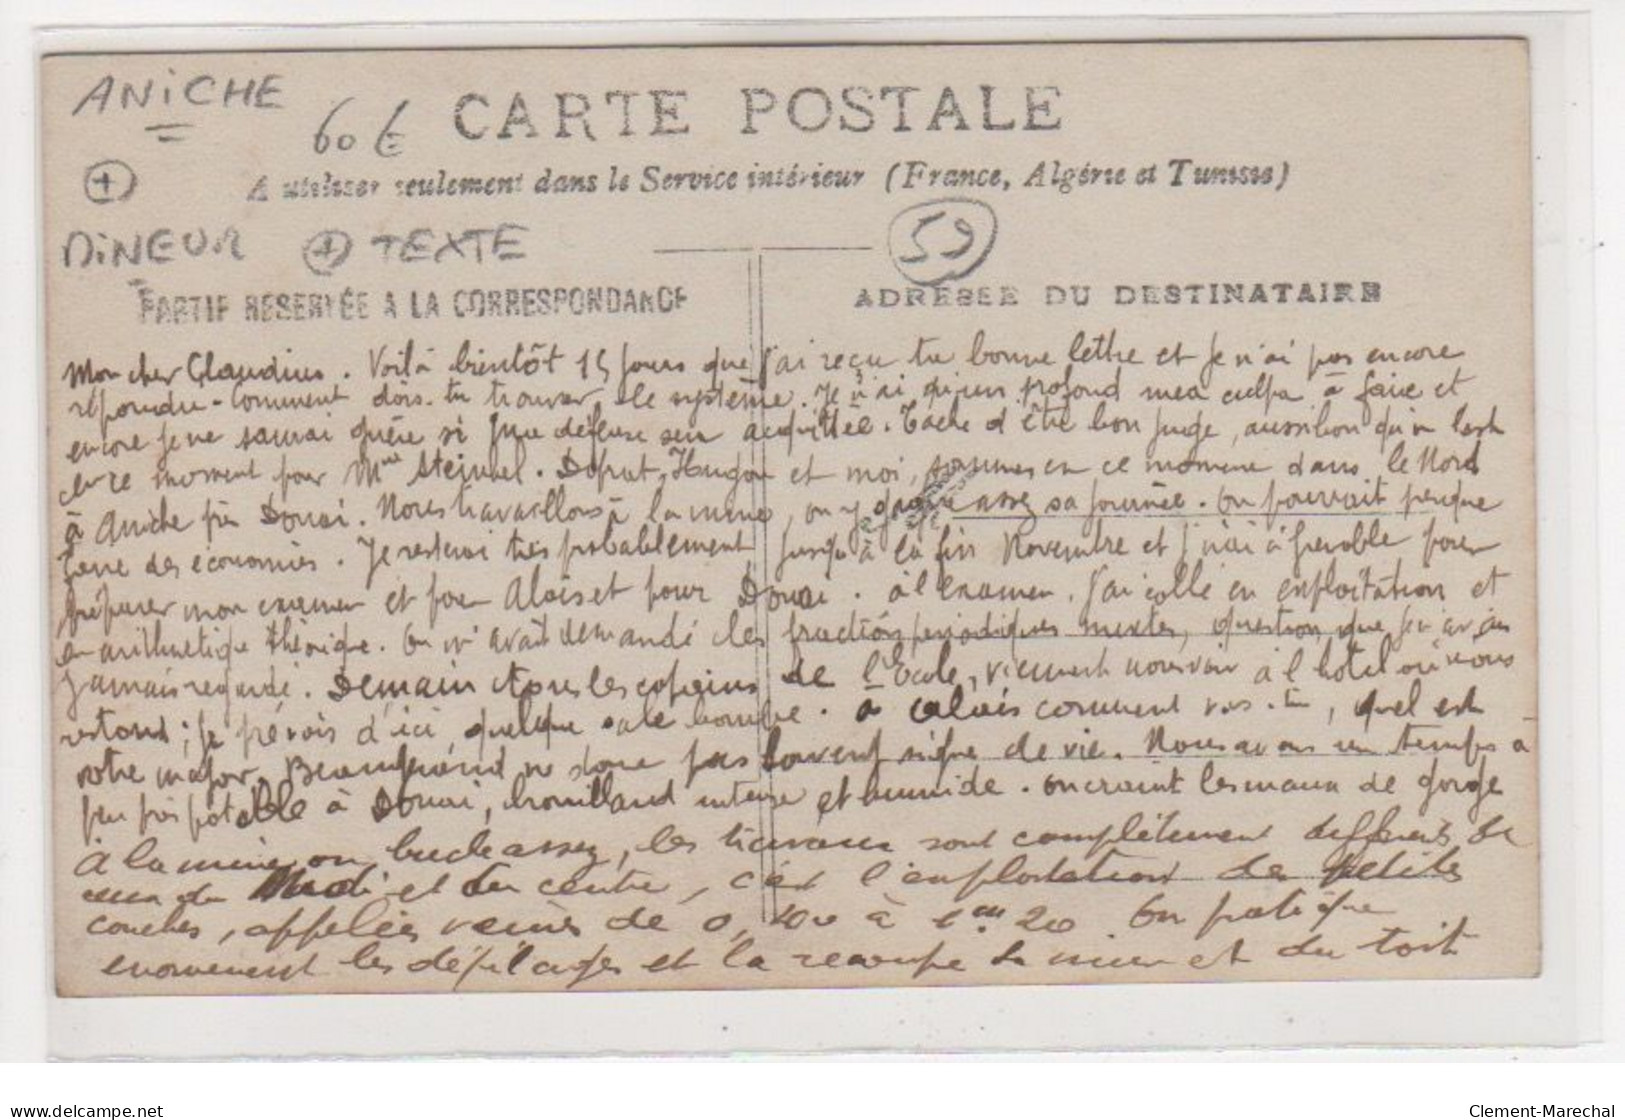 ANiCHE
60 €
CARTE POSTALE
+
A utiliser seulement dans le Service intérieur (France, Algérie et Tunisie)
MiNEUR + TEXTE
59
PARTIE RESERVÉE A LA CORRESPONDANCE
ADRESSE DU DESTINATAIRE
Mon cher Claudius. Voilà bientôt 15 jours que j'ai reçu ta bonne lettre et je n'ai pas encore
répondu - Comment dois-tu trouver le système. Je n'ai qu'un profond mea culpa à faire et
encore je ne saurai guère si une défense sera acquittée. Tache d'être bon juge, aussi bon qu'on l'est
en ce moment pour Mme Steinhel. Duprat, Hugon et moi, sommes en ce moment dans le Nord
à Aniche près Douai. Nous travaillons à la mine, on y gagne assez sa journée. On pourrait presque
faire des économies. Je resterai très probablement jusqu'à la fin Novembre et j'irai à pour
préparer mon examen et pour Alais et pour Douai. à l'examen. J'ai collé en exploitation et
en arithmetique théorique. On m'avait demandé les fractions periodiques mixtes, question que je n'avais
jamais regardé. Demain tous les copains de l'Ecole, viennent nous voir à l'hotel où nous
restons; je prévois d'ici, quelque sale bombe. à Alais comment vas-tu, quel est
votre major. ne donne pas souvent signe de vie. Nous avons un temps à
peu près potable à Douai, brouillard intense et humide. on craint les maux de gorge
à la mine on assez, les travaux sont complètement differents de
ceux du Midi et du centre, c'est l'exploitation de petites
couches, appelées veines de 0,40 à 1m.20 On pratique
enormement les dépilages et la recoupe de mur et du toit